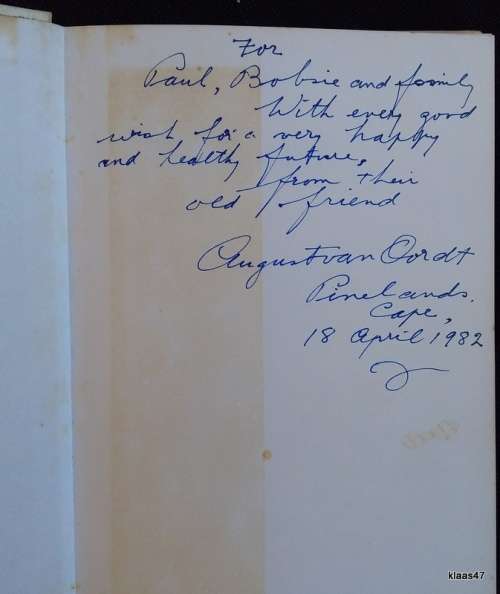 For
Paul, Bobsie and family
With every good
wish for a very happy
and healthy future,
from their
old friend
August van Oordt
Pinelands.
Cape,
18 April 1982
klaas47